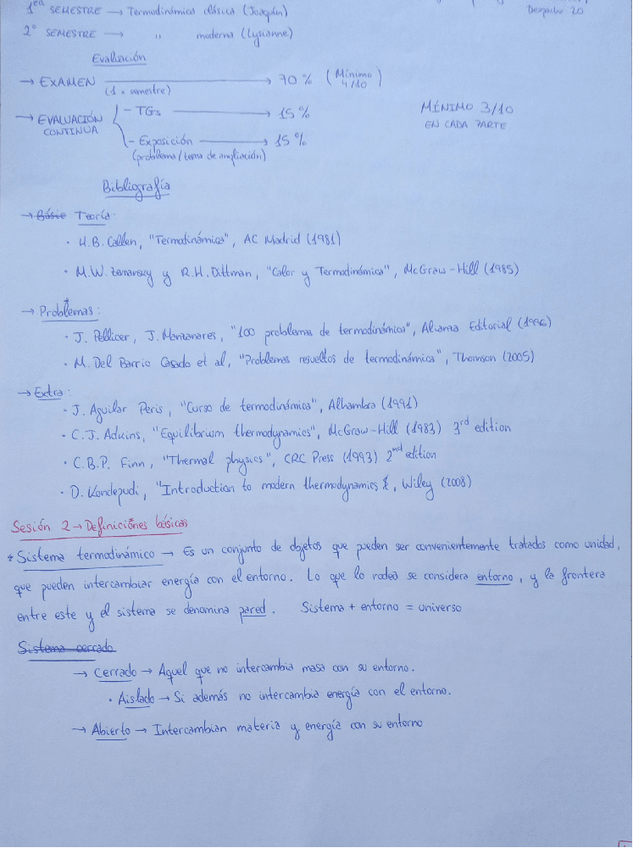 1er SEMESTRE → Termodinámica clásica (Joaquín)
Despacho 20
2º SEMESTRE → " moderna (Lysianne)
Evaluación
→ EXAMEN → 70% (Mínimo 4/10)
(1 x semestre)
→ EVALUACIÓN CONTINUA
- TGs → 15%
- Exposición → 15%
(problema/tema de ampliación)
MÍNIMO 3/10
EN CADA PARTE
Bibliografía
→ Básic Teoría:
· H.B. Callen, "Termodinámica", AC Madrid (1981)
· M.W. Zemansky y R.H. Dittman, "Calor y Termodinámica", McGraw-Hill (1985)
→ Problemas:
· J. Pellicer, J. Manzanares, "100 problemas de termodinámica", Alianza Editorial (1996)
· M. Del Barrio Casado et al, "Problemas resueltos de termodinámica", Thomson (2005)
→ Extra:
· J. Aguilar Peris, "Curso de termodinámica", Alhambra (1991)
· C.J. Adkins, "Equilibrium thermodynamics", McGraw-Hill (1983) 3rd edition
· C.B.P. Finn, "Thermal physics", CRC Press (1993) 2nd edition
· D. Kondepudi, "Introduction to modern thermodynamics", Wiley (2008)
Sesión 2 → Definiciones básicas
* Sistema termodinámico → Es un conjunto de objetos que pueden ser convenientemente tratados como unidad,
que pueden intercambiar energía con el entorno. Lo que lo rodea se considera entorno, y la frontera
entre este y el sistema se denomina pared. Sistema + entorno = universo
Sistema cerrado
→ Cerrado → Aquel que no intercambia masa con su entorno.
· Aislado → Si además no intercambia energía con el entorno.
→ Abierto → Intercambian materia y energía con su entorno